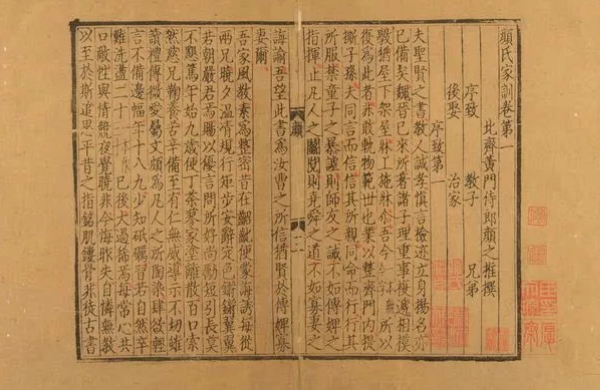 顔氏家訓卷第一
北齊黃門侍郎顔之推撰
序致 教子 兄弟
後娶 治家
序致第一
夫聖賢之書教人誠孝慎言檢迹立身揚名亦
已備矣魏晉已來所著諸子理重事複遞相摸
斆猶屋下架屋牀上施牀爾吾今所以
復為此者非敢軌物範世也業以整齊門内提
撕子孫夫同言而信信其所親同命而行行其
所服禁童子之暴謔則師友之誡不如傅婢之
指揮止凡人之鬭鬩則堯舜之道不如寡妻之
誨諭吾望此書為汝曹之所信猶賢於傅婢寡
妻爾
吾家風教素為整密昔在齠齔便蒙誨誘每從
兩兄曉夕溫凊規行矩步安辭定色鏘鏘翼翼
若朝嚴君焉賜以優言問所好尚勵短引長莫
不懇篤年始九歲便丁荼蓼家塗離散百口索
然慈兄鞠養苦辛備至有仁無威導示不切雖
讀禮傳微愛屬文頗為凡人之所陶染肆欲輕
言不備邊幅年十八九少知砥礪習若自然卒
難洗盪二十已後大過稀焉每常心共
口敵性與情競夜覺曉非今悔昨失自憐無教
以至於斯追思平昔之指銘肌鏤骨非徒古書